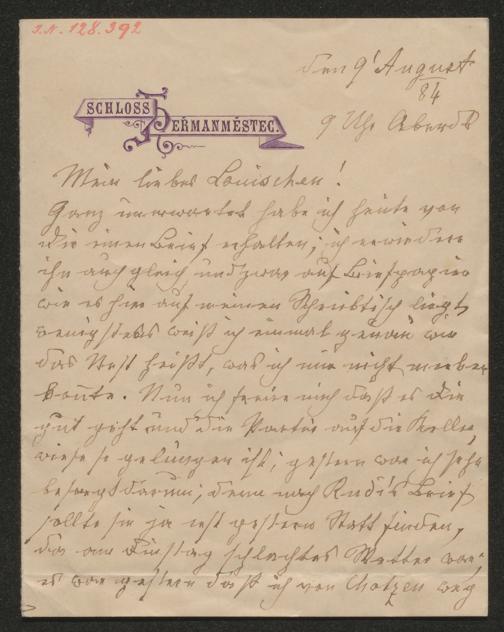 I.N. 128.392
den 9' August
84
SCHLOSS HEŘMANMĚSTEC.
9 Uhr Abends
Mein liebes Louischen!
Ganz unerwartet habe ich heute von
Dir einen Brief erhalten, ich erwiedere
ihn auch gleich und zwar auf Briefpapier
wie es hier auf meinen Schreibtisch liegt,
wenigstens weiß ich einmal genau wie
das Nest heißt, was ich mir nicht merken
konnte. Nun ich freue mich daß es Dir
gut geht und die Partie auf die Keller
wiese so gelungen ist; gestern war ich sehr
besorgt darum; denn nach Rudi's Brief
sollte sie ja erst gestern Statt finden,
da am Dinstag schlechtes Wetter war,
es war gestern daß ich von Chotzen weg